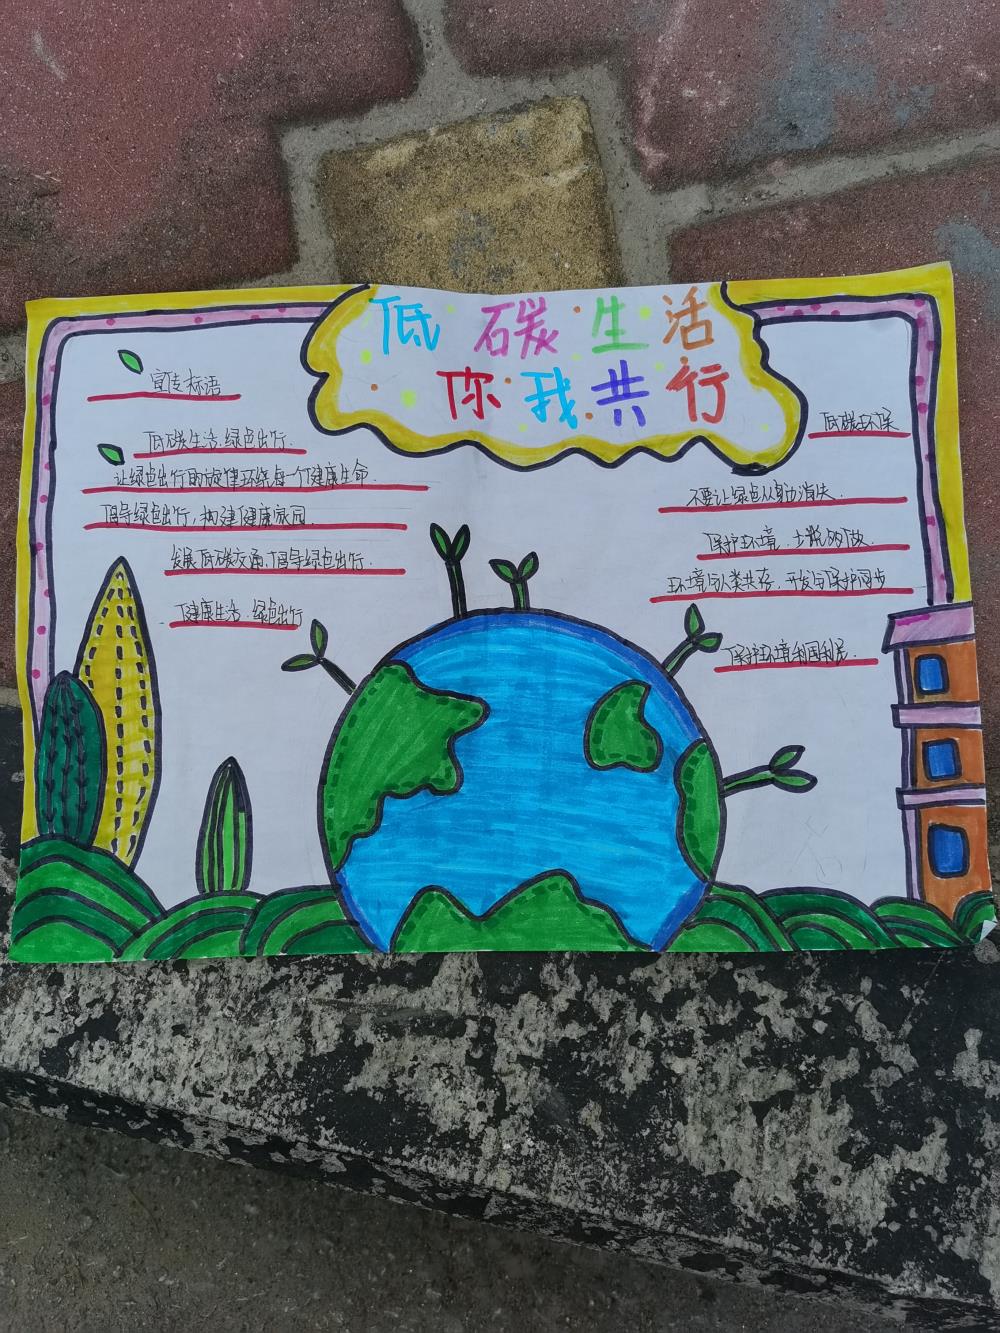 低碳生活
你我共行
宣传标语
低碳生活.绿色出行.
让绿色出行的旋律环绕每一个健康生命.
倡导绿色出行,构建健康家园.
发展低碳交通,倡导绿色出行.
健康生活.绿色出行
低碳环保
不要让绿色从身边消失.
保护环境.
环境与人类共存.开发与保护同步
保护环境利国利民.